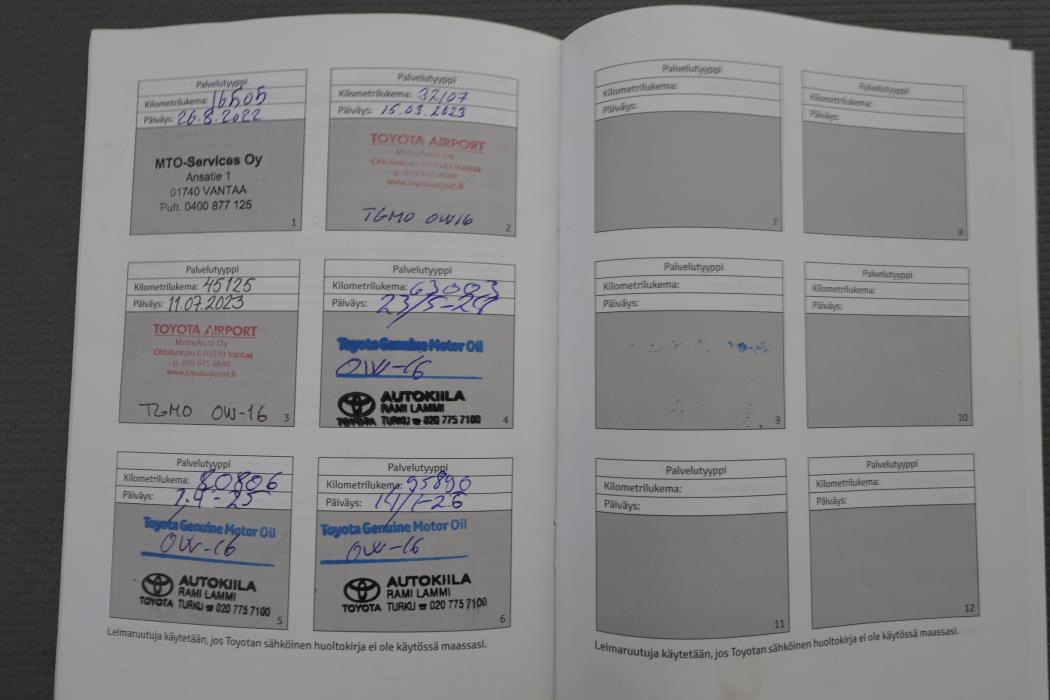 Palvelutyyppi
Kilometrilukema: 16505
Päiväys: 26.8.2022
MTO-Services Oy
Ansatie 1
01740 VANTAA
Puh. 0400 877 125
1
Palvelutyyppi
Kilometrilukema: 32107
Päiväys: 15.03.2023
TOYOTA AIRPORT
MetroAuto Oy
Ohtolankatu 6 01510 Vantaa
p. 010 615 8640
www.toyotaairport.fi
TGMO 0W16
2
Palvelutyyppi
Kilometrilukema: 45125
Päiväys: 11.07.2023
TOYOTA AIRPORT
MetroAuto Oy
Ohtolankatu 6 01510 Vantaa
p. 010 615 8640
www.toyotaairport.fi
TGMO 0W-16
3
Palvelutyyppi
Kilometrilukema: 63003
Päiväys: 23/5-24
Toyota Genuine Motor Oil
0W-16
AUTOKIILA
RAMI LAMMI
TOYOTA TURKU ☎ 020 775 7100
4
Palvelutyyppi
Kilometrilukema: 80806
Päiväys: 2.4-25
Toyota Genuine Motor Oil
0W-16
AUTOKIILA
RAMI LAMMI
TOYOTA TURKU ☎ 020 775 7100
5
Palvelutyyppi
Kilometrilukema: 95890
Päiväys: 14/1-26
Toyota Genuine Motor Oil
0W-16
AUTOKIILA
RAMI LAMMI
TOYOTA TURKU ☎ 020 775 7100
6
Leimaruutuja käytetään, jos Toyotan sähköinen huoltokirja ei ole käytössä maassasi.
Palvelutyyppi
Kilometrilukema:
Päiväys:
7
Palvelutyyppi
Kilometrilukema:
Päiväys:
8
Palvelutyyppi
Kilometrilukema:
Päiväys:
9
Palvelutyyppi
Kilometrilukema:
Päiväys:
10
Palvelutyyppi
Kilometrilukema:
Päiväys:
11
Palvelutyyppi
Kilometrilukema:
Päiväys:
12
Leimaruutuja käytetään, jos Toyotan sähköinen huoltokirja ei ole käytössä maassasi.